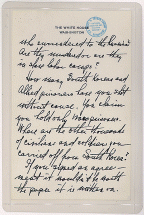 THE WHITE HOUSE
WASHINGTON
who surrendered to the Russians?
Are they murdered or are they
in slave labor camps?
How many South Koreans and
Allied prisoners have you shot
without cause. You claim
you hold only
Where are the other thousands
of civilians and soldiers you
carried off from South Korea?
If you signed an agree-
ment it wouldn't be worth
the paper it is written on.